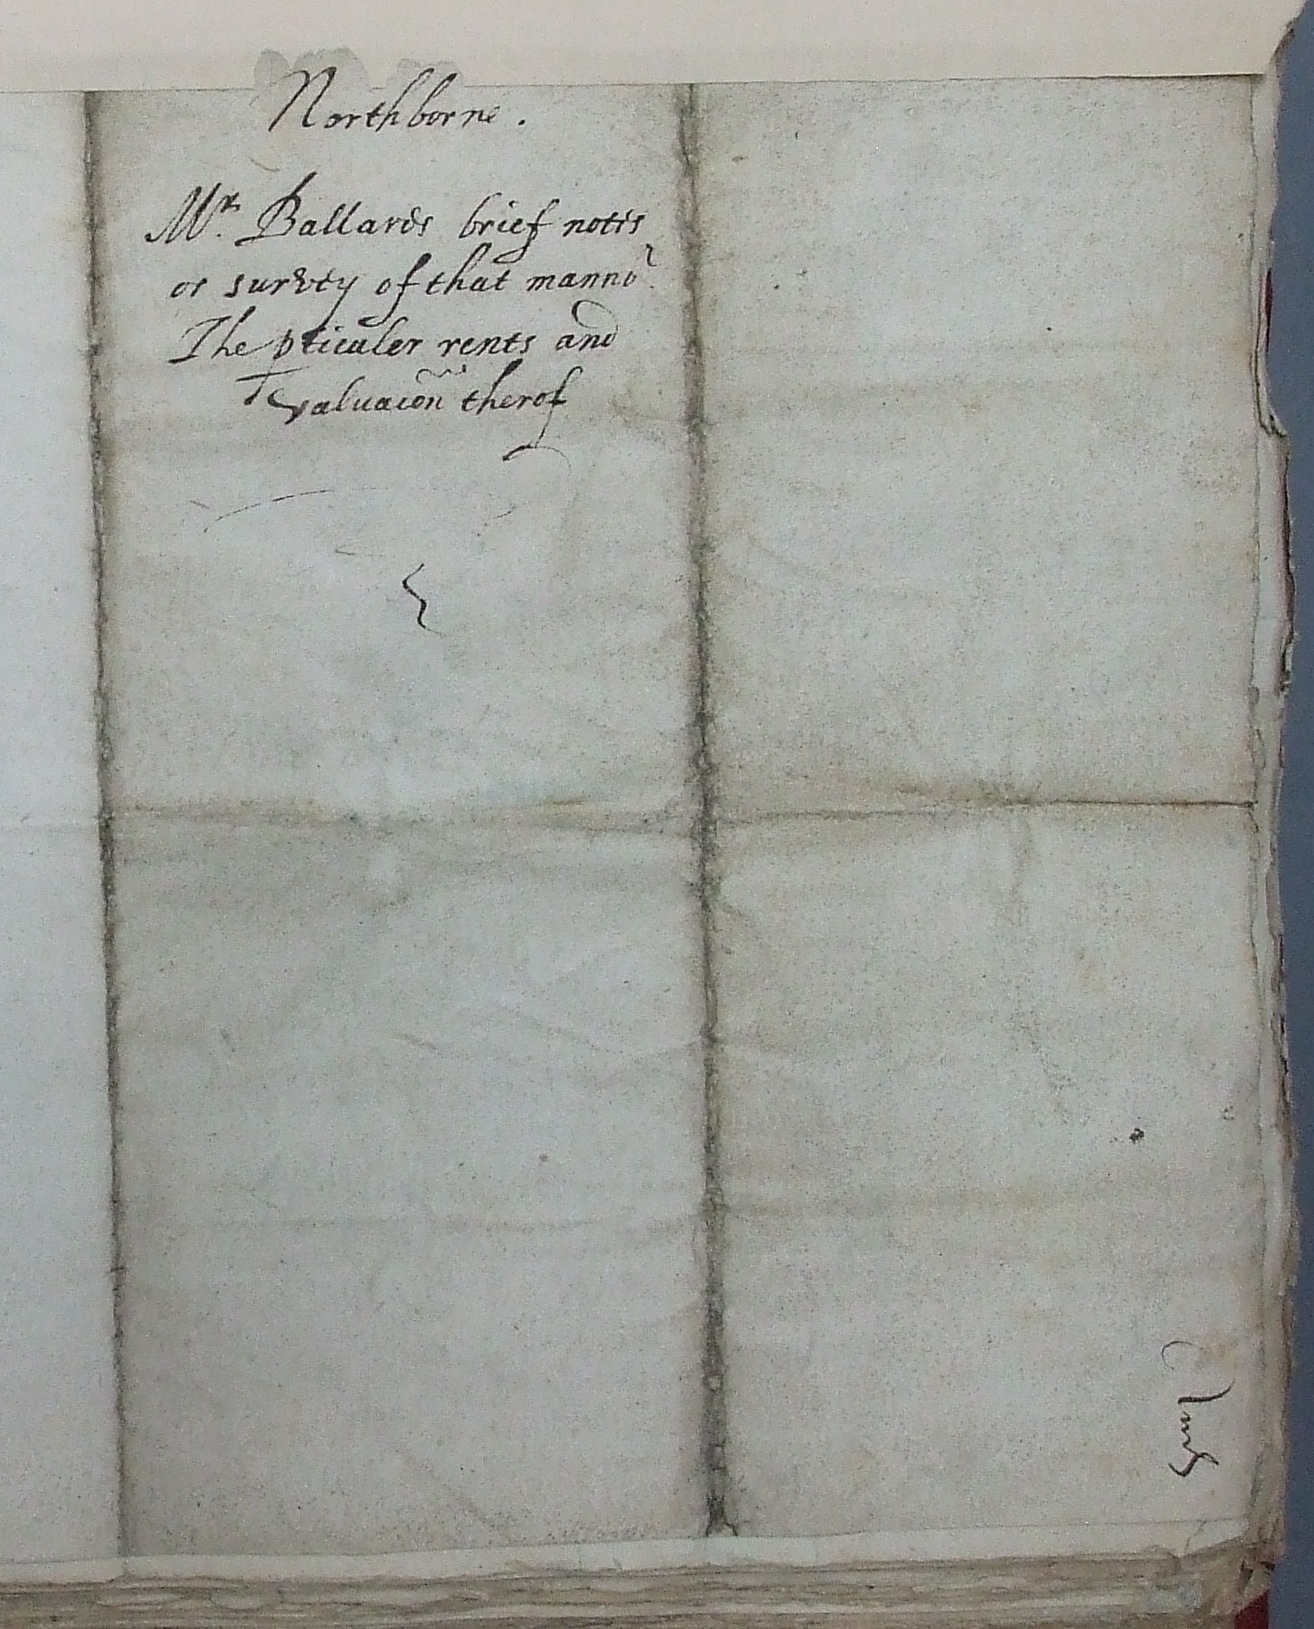 Northborne.
Mr. Ballards brief notes
or survey of that manno^r.
The p̱ticuler rents and
valuac̃on therof